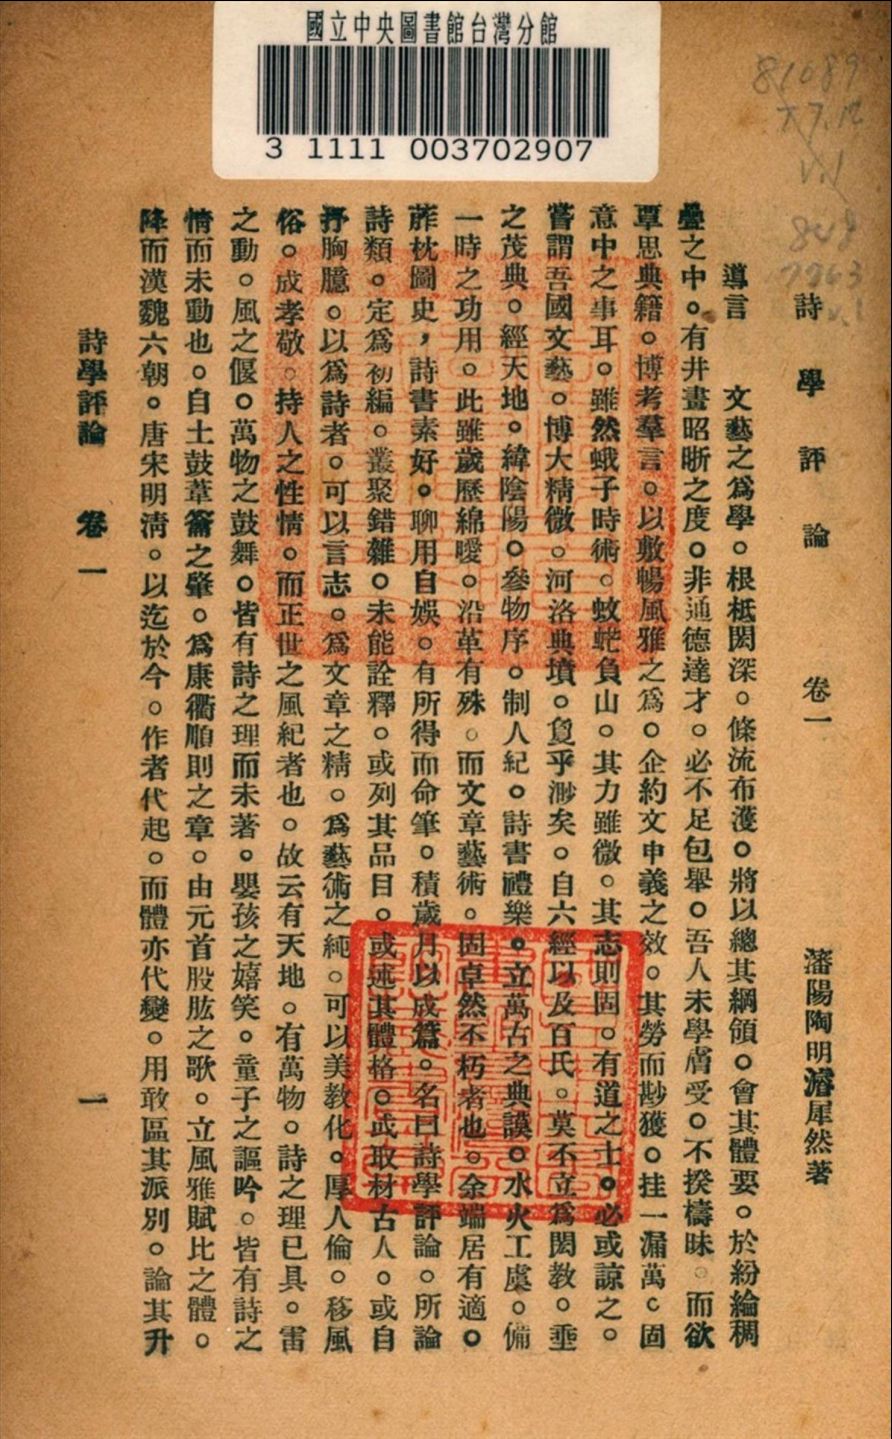 國立中央圖書館台灣分館
3 1111 003702907
81089
848
7763
v.1
詩學評論 卷一
瀋陽陶明濬犀然著
導言 文藝之爲學。根柢閎深。條流布濩。將以總其綱領。會其體要。於紛綸稠
疊之中。有井畫昭晣之度。非通德達才。必不足包舉。吾人末學膚受。不揆檮昧。而欲
覃思典籍。博考羣言。以敷暢風雅之爲。企約文申義之效。其勞而尠獲。挂一漏萬。固
意中之事耳。雖然蛾子時術。蚊虻負山。其力雖微。其志則固。有道之士。必或諒之。
嘗謂吾國文藝。博大精微。河洛典墳。敻乎渺矣。自六經以及百氏。莫不立爲閎教。垂
之茂典。經天地。緯陰陽。參物序。制人紀。詩書禮樂。立萬古之典謨。水火工虞。備
一時之功用。此雖歲歷綿曖。沿革有殊。而文章藝術。固卓然不朽者也。余端居有適。
葄枕圖史，詩書素好。聊用自娛。有所得而命筆。積歲月以成篇。名曰詩學評論。所論
詩類。定爲初編。叢聚錯雜。未能詮釋。或列其品目。或述其體格。或取材古人。或自
抒胸臆。以爲詩者。可以言志。爲文章之精。爲藝術之純。可以美教化。厚人倫。移風
俗。成孝敬。持人之性情。而正世之風紀者也。故云有天地。有萬物。詩之理已具。雷
之動。風之偃。萬物之鼓舞。皆有詩之理而未著。嬰孩之嬉笑。童子之謳吟。皆有詩之
情而未動也。自土鼓葦籥之肇。爲康衢順則之章。由元首股肱之歌。立風雅賦比之體。
降而漢魏六朝。唐宋明淸。以迄於今。作者代起。而體亦代變。用敢區其派別。論其升
詩學評論 卷一 一